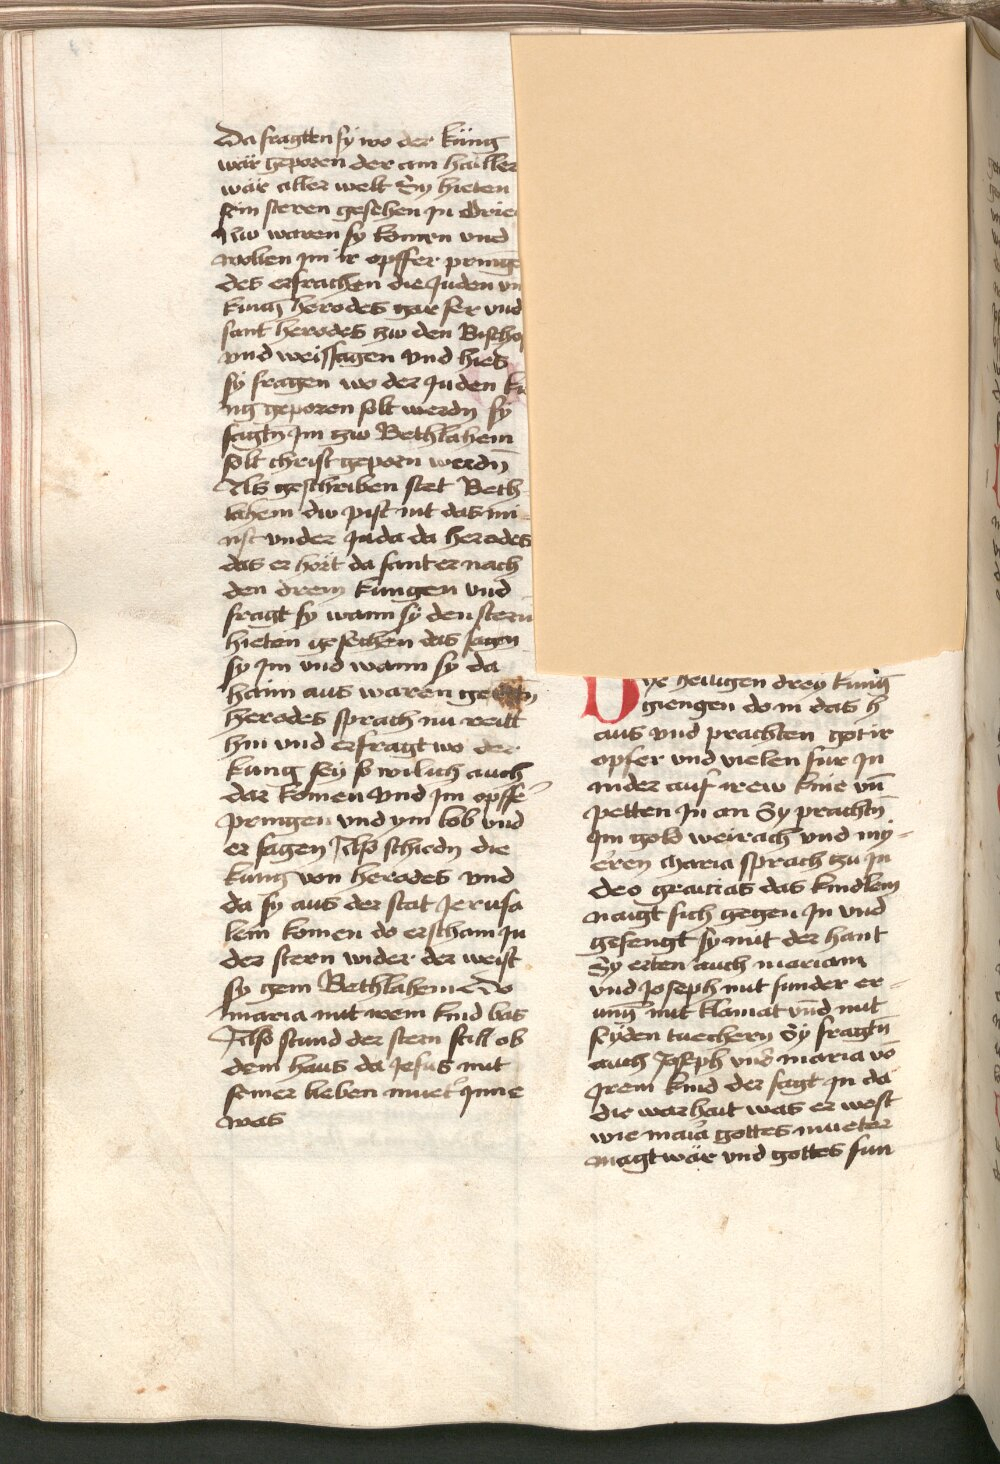 Da fragtten sy wo der küng
wär geporen der am haller
wär aller welt Sy hieten
sein steren gesehen in Orie
Nw waren sy komen vnd
wolten im ir opffer pringe
des erschrachen die Juden vn
kung herodes gar ser vnd
sant herodes zw den Bischo
vnd weissagen vnd hies
sy fragen wo der Juden kü
ng geporen solt werdn sy
sagtn Jm zw Bethlahem
solt christ geporn werdn̄
Als geschriben stet Beth
lahem dw pist nit das mi
nst vnder Juda da herodes
das er hört da sant er nach
den drein kungen vnd
fragt sy wann sy den stern
hieten gesechen das sagen
sy Jm vnd wann sy da
haim aus waren
herodes sprach nu reitt
hin vnd erfragt wo der
kung sey so wil ich auch
dar komen vnd Jm opffe
pringen vnd ym lob vnd
er sagen Also schiedn die
kung von herodes vnd
da sy aus der stat Jerusa
lem komen do erscham Jn
der stern wider der weist
sy gem Bethlahem Wo
maria mit irem kind bas
Also stund der stern still ob
dem haus da Jesus mit
seiner lieben muet' Jnne
was
Dye heiligen drey küng
giengen do in das h
aus vnd prachten got ir
opfer vnd vielen fur Jn
nider auf irew knie vn̄
petten Jn an Sy prachtn
Jm gold weirach vnd my-
eren Maria sprach zu Jn
deo gracias das kindlein
naigt sich gegen Jn vnd
gesengt sy mit der hant
Sy erten auch mariam
vnd Joseph mit sunder er-
ung mit klainat vnd mit
seyden tuechern Sy fragtn
auch Joseph vnd maria vō
Jrem kind der sagt Jn da
die warhait was er west
wie maria gottes mueter
magt wär vnd gottes sun